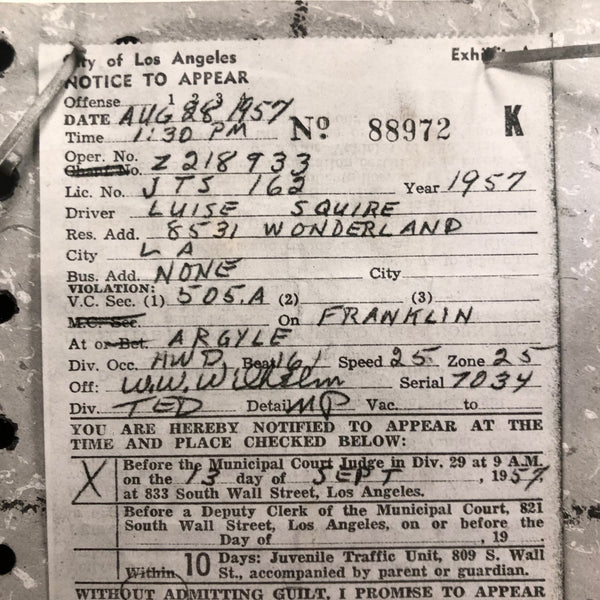 City of Los Angeles
NOTICE TO APPEAR
Offense 1 2 3 4
DATE AUG 28 1957
Time 1:30 PM Nº 88972 K
Oper. No. Z 218933
Chant. No.
Lic. No. JTS 162 Year 1957
Driver LUISE SQUIRE
Res. Add. 8531 WONDERLAND
City L A
Bus. Add. NONE City
VIOLATION:
V.C. Sec. (1) 505.A (2) (3)
M.C. Sec. On FRANKLIN
At or Bet. ARGYLE
Div. Occ. HWD Beat 161 Speed 25 Zone 25
Off: W.W. Wilhelm Serial 7034
Div. TED Detail MP Vac. to
YOU ARE HEREBY NOTIFIED TO APPEAR AT THE
TIME AND PLACE CHECKED BELOW:
X Before the Municipal Court Judge in Div. 29 at 9 A.M.
on the 13 day of SEPT, 1957
at 833 South Wall Street, Los Angeles.
Before a Deputy Clerk of the Municipal Court, 821
South Wall Street, Los Angeles, on or before the
Day of , 19
Within 10 Days: Juvenile Traffic Unit, 809 S. Wall
St., accompanied by parent or guardian.
WITHOUT ADMITTING GUILT, I PROMISE TO APPEAR